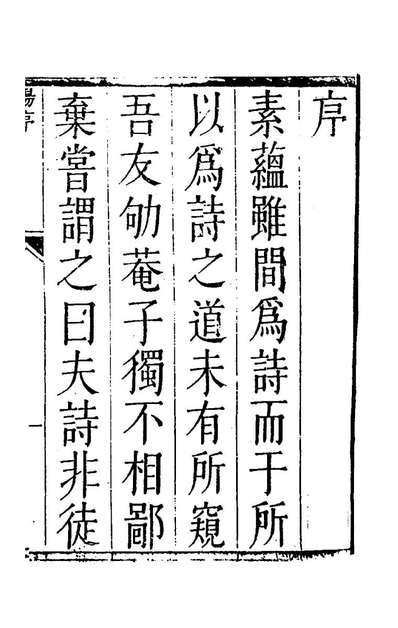 序
素蘊雖間爲詩而于所
以爲詩之道未有所窺
吾友劬菴子獨不相鄙
棄嘗謂之曰夫詩非徒